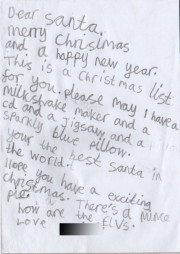 Dear Santa.
merry Christmas
and a happy new year.
This is a Christmas list
for you. please may I have a
milkshake maker and a
cd and a Jigsaw and a
sparkly blue pillow.
your the best santa in
the world.
I hope you have a exciting
christmas. There's a mince
pie.
how are the Elvs.
Love